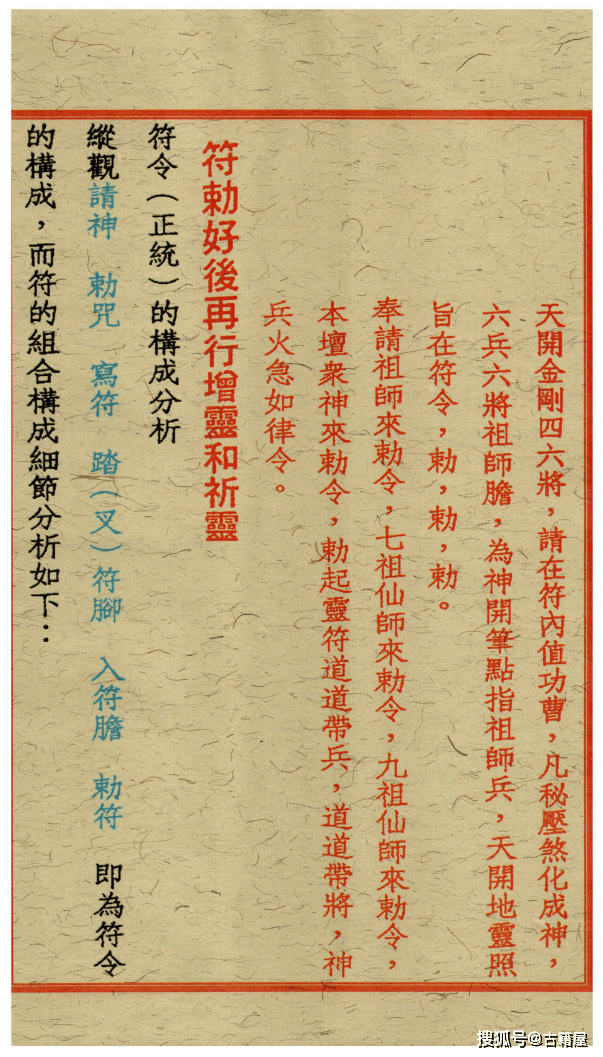 天開金剛四六將，請在符內值功曹，凡秘壓煞化成神，
六兵六將祖師膽，為神開筆點指祖師兵，天開地靈照
旨在符令，勅，勅，勅。
奉請祖師來勅令，七祖仙師來勅令，九祖仙師來勅令，
本壇衆神來勅令，勅起靈符道道帶兵，道道帶將，神
兵火急如律令。
符勅好後再行增靈和祈靈
符令（正統）的構成分析
縱觀請神 勅咒 寫符 踏（叉）符腳 入符膽 勅符 即為符令
的構成，而符的組合構成細節分析如下：
搜狐号@古籍屋